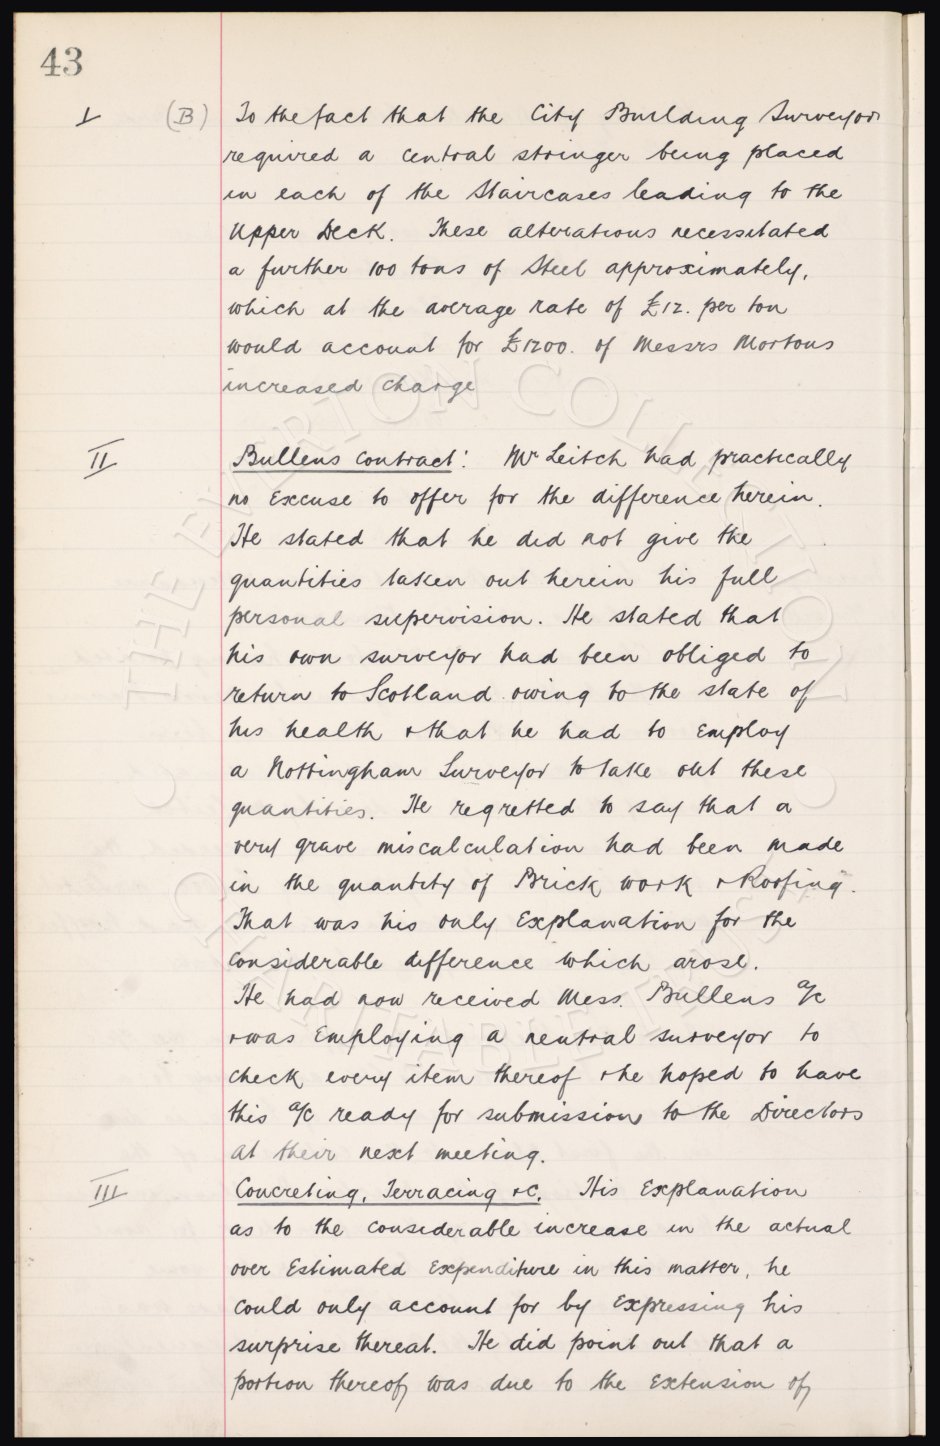 43
I (B) To the fact that the City Building Surveyor
required a central stringer being placed
in each of the Staircases leading to the
Upper Deck. These alterations necessitated
a further 100 tons of Steel approximately,
which at the average rate of £12. per ton
would account for £1200. of Messrs Mortons
increased charge
II Bullens Contract: Mr Leitch had practically
no Excuse to offer for the difference herein.
He stated that he did not give the
quantities taken out herein his full
personal supervision. He stated that
his own surveyor had been obliged to
return to Scotland owing to the state of
his health & that he had to Employ
a Nottingham Surveyor to take out these
quantities. He regretted to say that a
very grave miscalculation had been made
in the quantity of Brick work & Roofing.
That was his only Explanation for the
Considerable difference which arose.
He had now received Mess. Bullens a/c
& was Employing a neutral surveyor to
check every item thereof & he hoped to have
this a/c ready for submission to the Directors
at their next meeting.
III Concreting, Terracing &c. His Explanation
as to the considerable increase in the actual
over Estimated Expenditure in this matter, he
could only account for by Expressing his
surprise thereat. He did point out that a
portion thereof was due to the Extension of
THE EVERTON COLLECTION